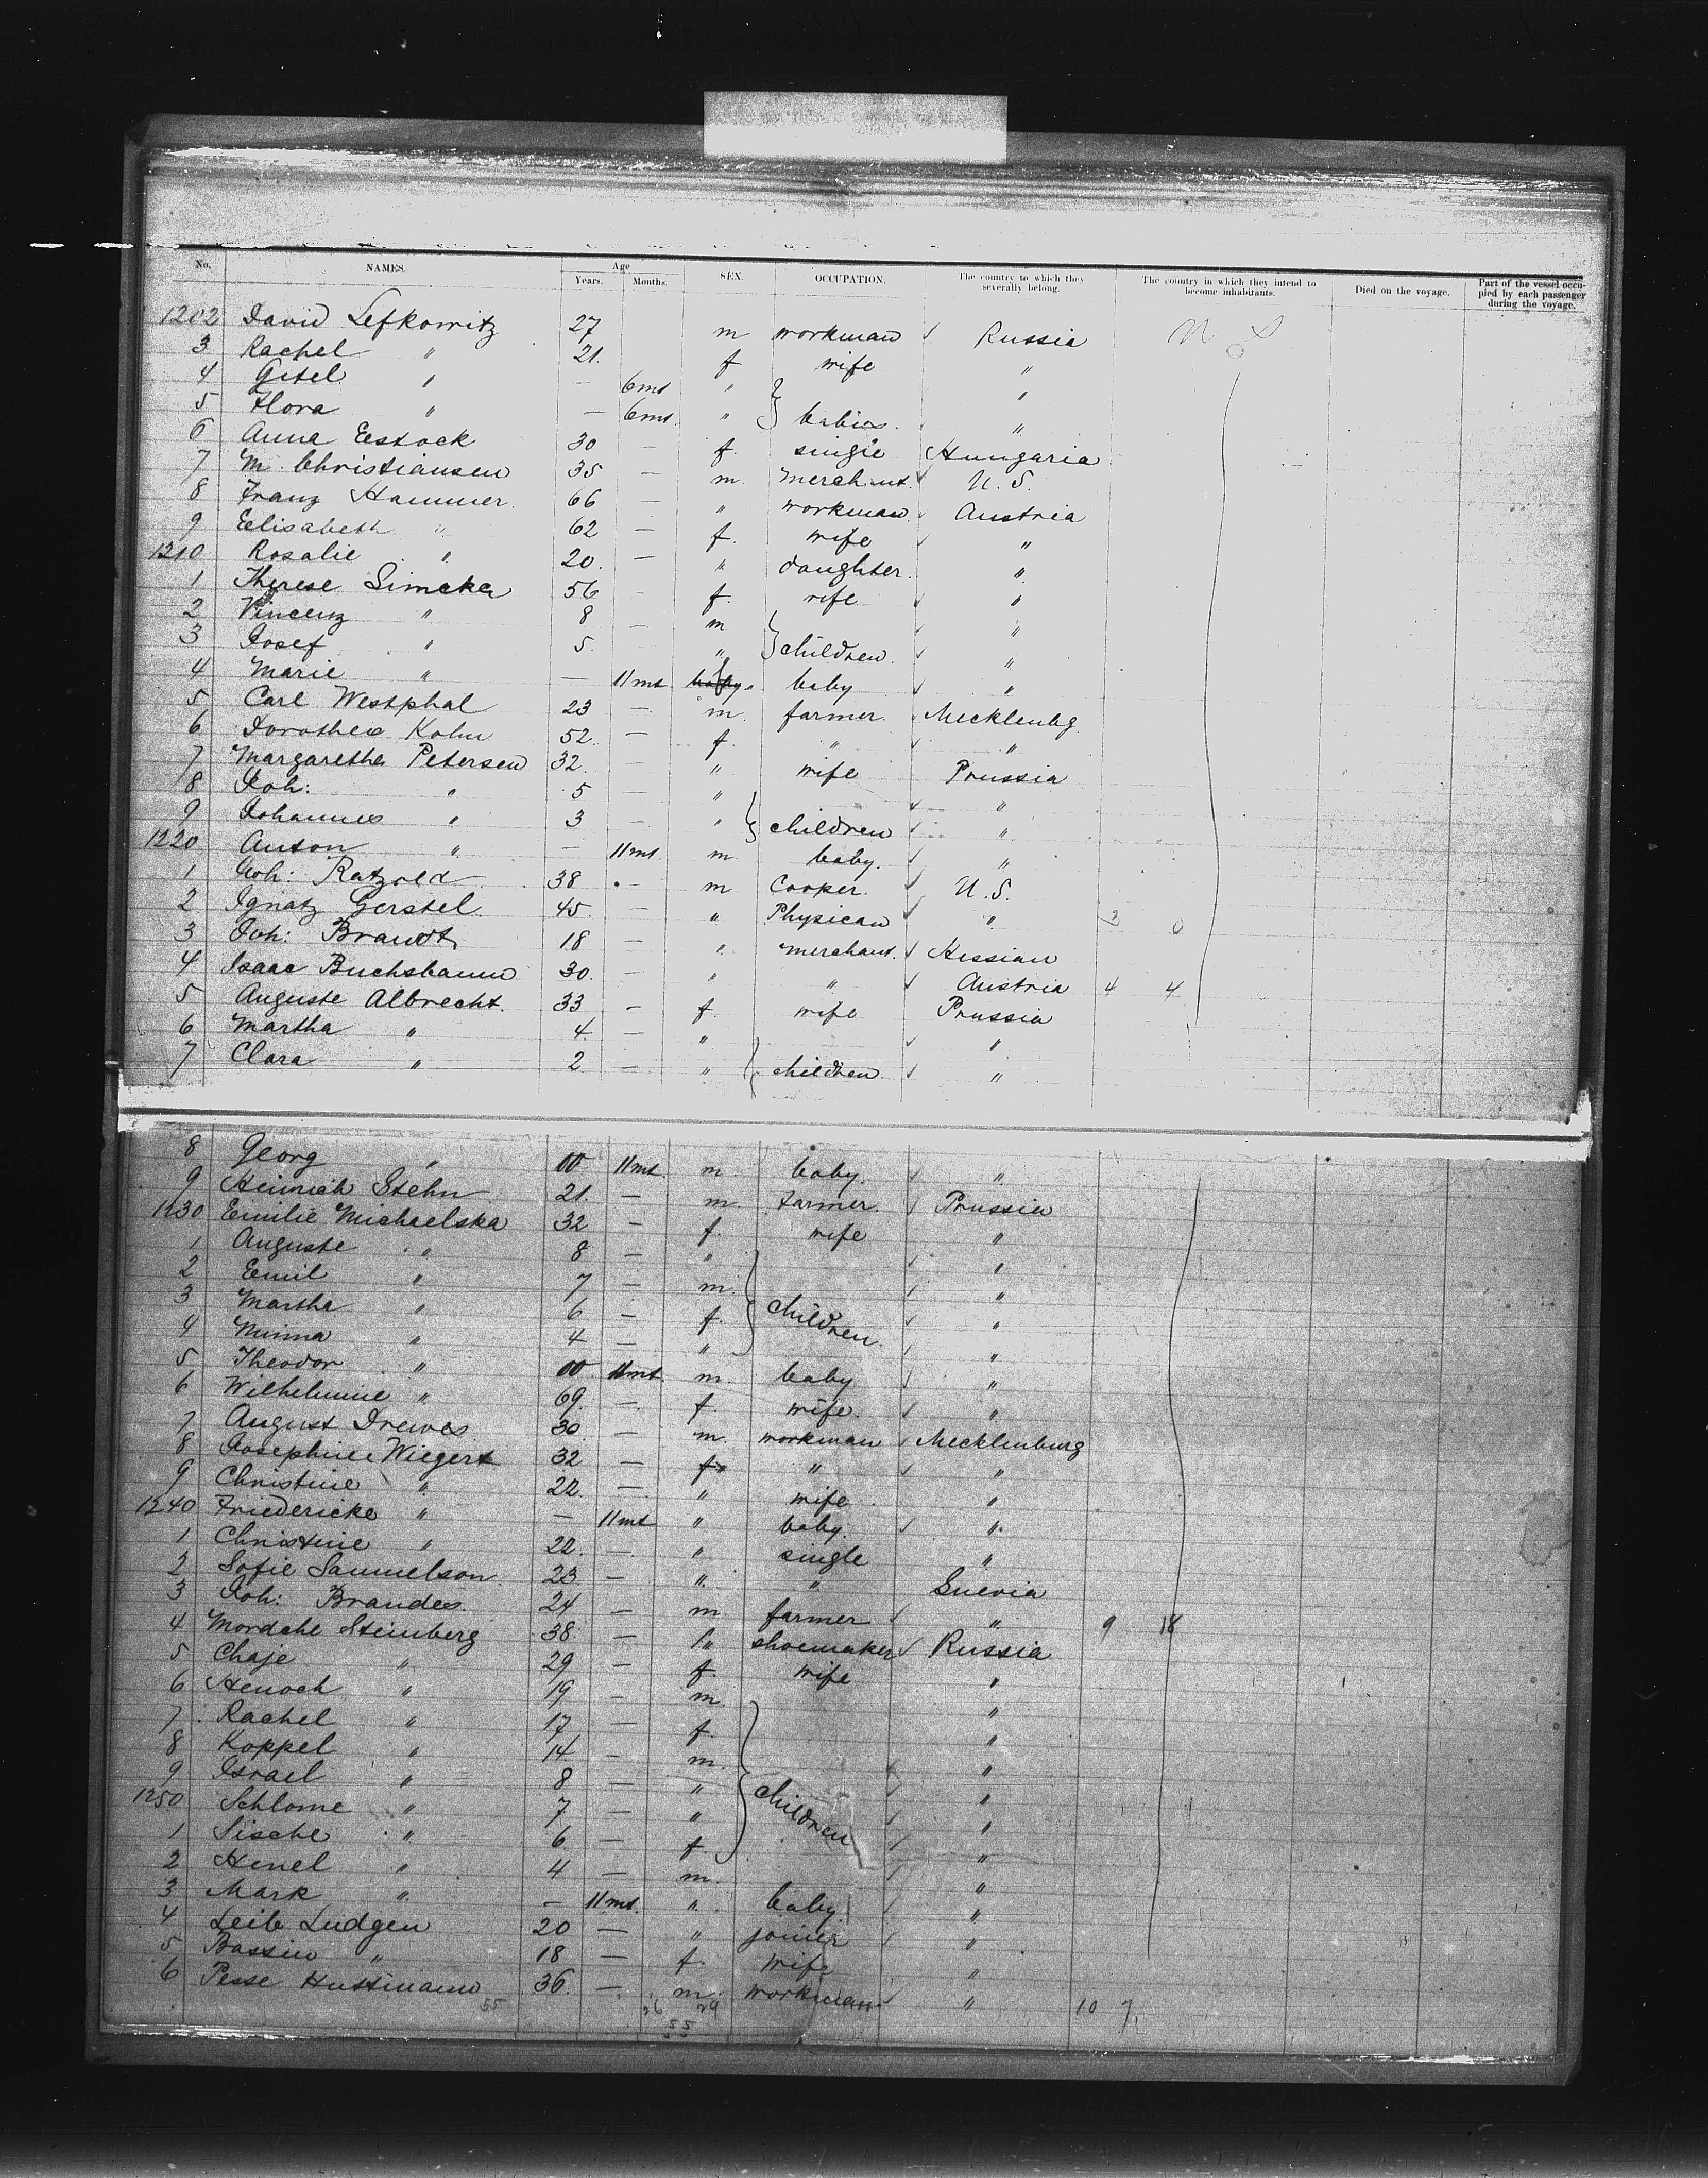 No. NAMES. Age Years. Months. SEX. OCCUPATION. The country to which they severally belong. The country in which they intend to become inhabitants. Died on the voyage. Part of the vessel occupied by each passenger during the voyage.
1202 David Lefkowitz 27 m workman ✓ Russia U S
3 Rachel " 21. f wife "
4 Gitel " — 6mt " } "
5 Flora " — 6mt. " } babies. "
6 Anna Estock 30 — f. single Hungaria
7 M. Christiansen 35 — m. merchant. ✓ U. S.
8 Franz Hammer. 66 — " workman. ✓ Austria
9 Elisabeth " 62 — f. wife ✓ "
1210 Rosalie " 20. — " daughter. "
1 Therese Simcka 56 f. wife ✓ "
2 Vincenz " 8 — m } ✓ "
3 Josef " 5. " } children. ✓ "
4 Marie " — 11mt baby " baby ✓ "
5 Carl Westphal 23 — m. farmer. Mecklenbg.
6 Dorothea Kohn 52. — f. " ✓ "
7 Margaretha Petersen 32. — " wife Prussia
8 Joh: " 5 — " } ✓ "
9 Johannes " 3 — " } children ✓ "
1220 Anton " — 11mt m baby. ✓ "
1 Joh: Ratzold 38 — m Cooper. ✓ U. S.
2 Ignatz Gerstel. 45. — " Physican ✓ " 3 0
3 Joh: Brandt 18 — " merchant. ✓ Hessian
4 Isaac Buchsbaum 30. — " " ✓ Austria 4 4
5 Auguste Albrecht. 33 — f. wife Prussia
6 Martha " 4. — " } ✓ "
7 Clara " 2 — " } children. ✓ "
8 Georg " 00 11mt. m baby. ✓ "
9 Heinrich Stehn 21. — m. farmer. ✓ Prussia
1230 Emilie Michaelska 32 — f. wife "
1 Auguste " 8 — " } ✓ "
2 Emil " 7 — m. ✓ "
3 Martha " 6 — f. children. ✓ "
4 Minna " 4 — " } ✓ "
5 Theodor " 00 11mt. m. baby ✓ "
6 Wilhelmine " 69. — f. wife. ✓ "
7 August Drewes. 30. — m. workman ✓ Mecklenburg
8 Josephine Wiegert 32 — f " " ✓ "
9 Christine " 22. — " wife "
1240 Friedericke " — 11mt " baby. ✓ "
1 Christine " 22. — " single "
2 Sofie Samuelson 23 — " " Suevia
3 Joh: Brandes. 24 — m. farmer ✓ " 9 18
4 Mordche Steinberg 38. — " shoemaker ✓ Russia
5 Chaje " 29 — f. wife "
6 Henoch " 19 — m. } "
7 Rachel " 17 — f. "
8 Koppel " 14 — m. ✓ "
9 Israel " 8 — " children ✓ "
1250 Schlome " 7 — " ✓ "
1 Sische " 6 — f. } ✓ "
2 Henel " 4 — m. ✓ "
3 Mark " — 11mt. " baby. ✓ "
4 Leib Ludgen 20 — " joiner ✓ "
5 Bassin " 18 — f. wife "
6 Pesse 36. — m. workman ✓ " 10 7
55 26 29
55